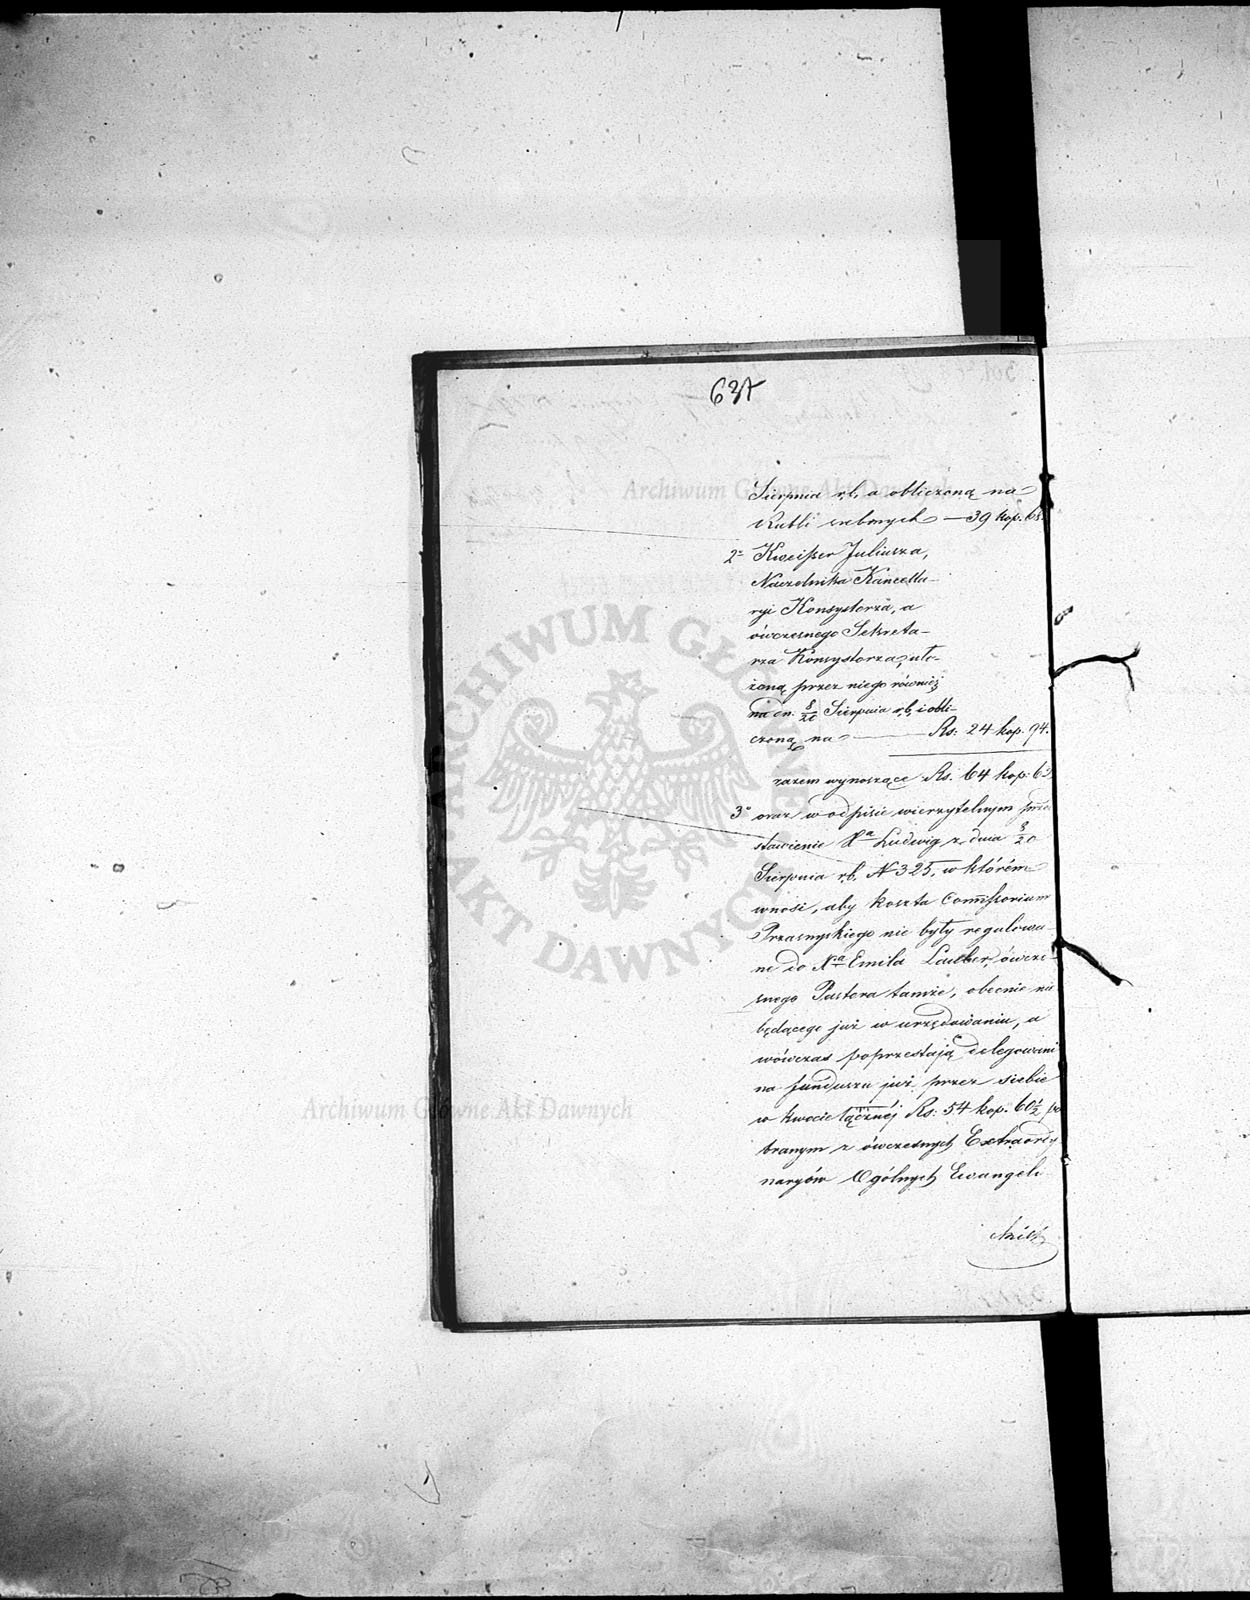 637
Sierpnia r.b. a obliczoną na
Rubli srebrnych — 39 kop. 68.
2° Kweisser Juliusza,
Naczelnika Kancella-
ryi Konsystorza, a
ówczesnego Sekreta-
rza Konsystorza, uło-
żoną przez niego również
na dn. 8/20 Sierpnia r.b. i obli-
czoną na — Rs: 24 kop. 94.
razem wynoszące Rs. 64 kop: 62
3° oraz w odpisie wierzytelnym przed
stawienie Xa Ludwig z dnia 8/20
Sierpnia r.b. N 325, w którém
wnosi, aby koszta Commissorium
Przasnyskiego nie były regulowa-
ne do Xa Emila Lauber, ówcze-
snego Pastora tamże, obecnie nie
będącego już w urzędowaniu, a
wówczas poprzestają delegowani
na funduszu już przez siebie
w kwocie łącznéj Rs: 54 kop. 60½ po
branym z ówczesnych Extraordy
naryów Ogólnych Ewangeli
ARCHIWUM GŁÓWNE AKT DAWNYCH
Archiwum Główne Akt Dawnych
Archiwum Główne Akt Dawnych